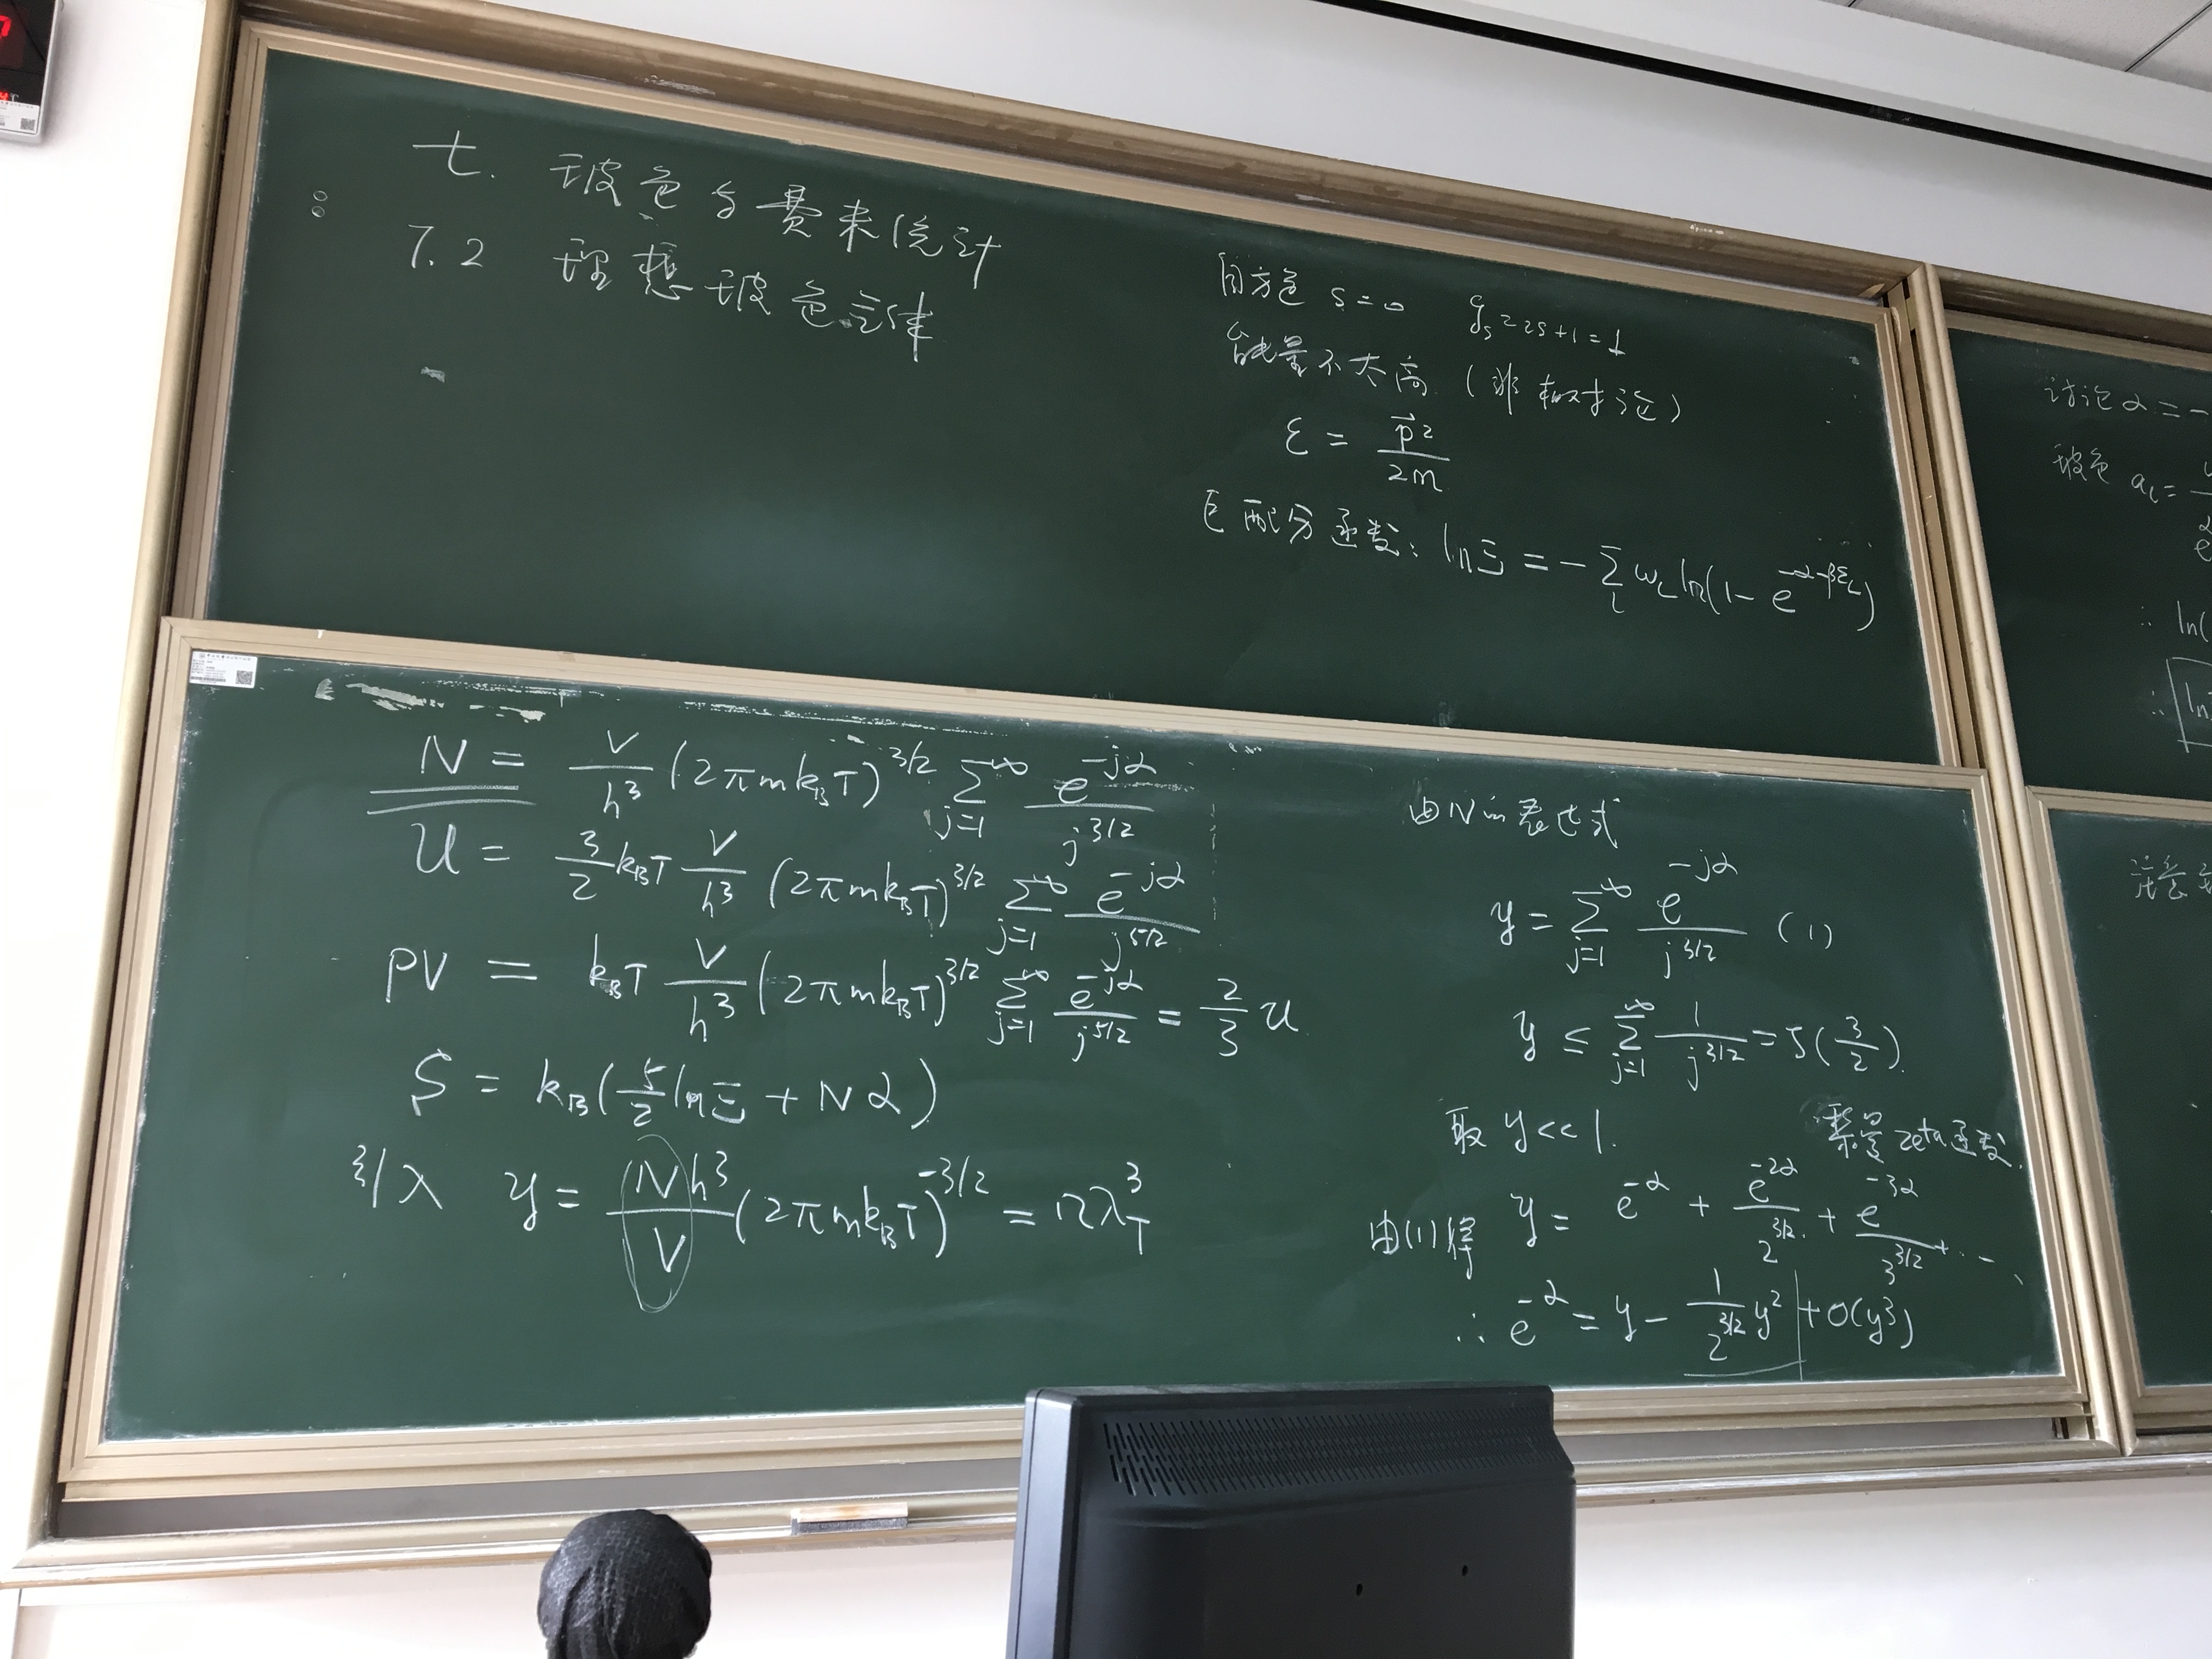 七. 玻色与费米统计
7.2 理想玻色定律
自旋色 s=0 g_s=2s+1=1
能量不太高 (非相对论)
ε = p⃗²/2m
巨配分函数: lnΞ = -∑_l ω_l ln(1 - e^{-α-βε_l})
N = V/h³ (2πmk_BT)^{3/2} ∑_{j=1}^∞ e^{-jα}/j^{3/2}
U = 3/2 k_BT V/h³ (2πmk_BT)^{3/2} ∑_{j=1}^∞ e^{-jα}/j^{5/2}
PV = k_BT V/h³ (2πmk_BT)^{3/2} ∑_{j=1}^∞ e^{-jα}/j^{5/2} = 2/3 U
S = k_B(5/2 lnΞ + Nα)
引入 y = Nh³/V (2πmk_BT)^{-3/2} = nλ_T³
由N的表达式
y = ∑_{j=1}^∞ e^{-jα}/j^{3/2} (1)
y ≤ ∑_{j=1}^∞ 1/j^{3/2} = ζ(3/2)
取 y<<1. 黎曼zeta函数.
由(1)得 y = e^{-α} + e^{-2α}/2^{3/2} + e^{-3α}/3^{3/2} + ...
∴ e^{-α} = y - 1/2^{3/2} y² + O(y³)
讨论 α = -
玻色 a_l =
∴ ln(
∴ ln